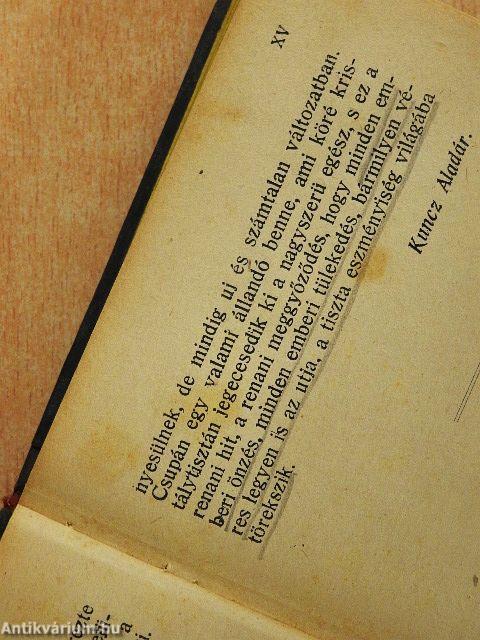 XV
nyesülnek, de mindig uj és számtalan változatban.
Csupán egy valami állandó benne, ami köré kris-
tálytisztán jegecesedik ki a nagyszerü egész, s ez a
renani hit, a renani meggyőződés, hogy minden em-
beri önzés, minden emberi tülekedés, bármilyen vé-
res legyen is az utja, a tiszta eszményiség világába
törekszik.
Kuncz Aladár.
Antikvárium.hu